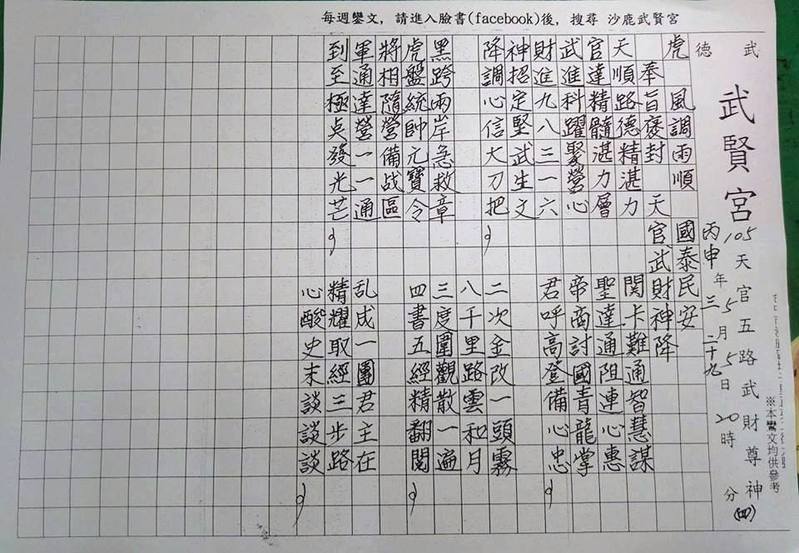 每週鑾文, 請進入臉書(facebook)後, 搜尋 沙鹿武賢宮
武德
武賢宮
天官五路武財尊神(四)
105年5月5日20時 分
丙申 三 二十九
※本鸞文均供參考
虎 風調雨順 國泰民安
奉旨褒封 天官武財神降
天順路德精湛力
官達精髓湛力層
武進科躍聚營心
財進九八三一六
神招定堅武生文
降調心信大刀把
黑跨兩岸急救章
虎盤統帥元寶令
將相隨營備战區
軍通達營一一通
到至極奌發光芒
關卡難通智慧謀
聖達通阻連心惠
帝商討國青龍掌
君呼高登備心忠
二次金改一頭霧
八千里路雲和月
三度圍觀散一遍
四書五經精翻閱
乱成一團君主在
精耀取經三步路
心酸史末談談談